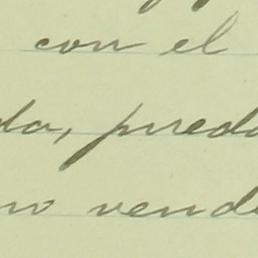 con el
da, pueda
no vende